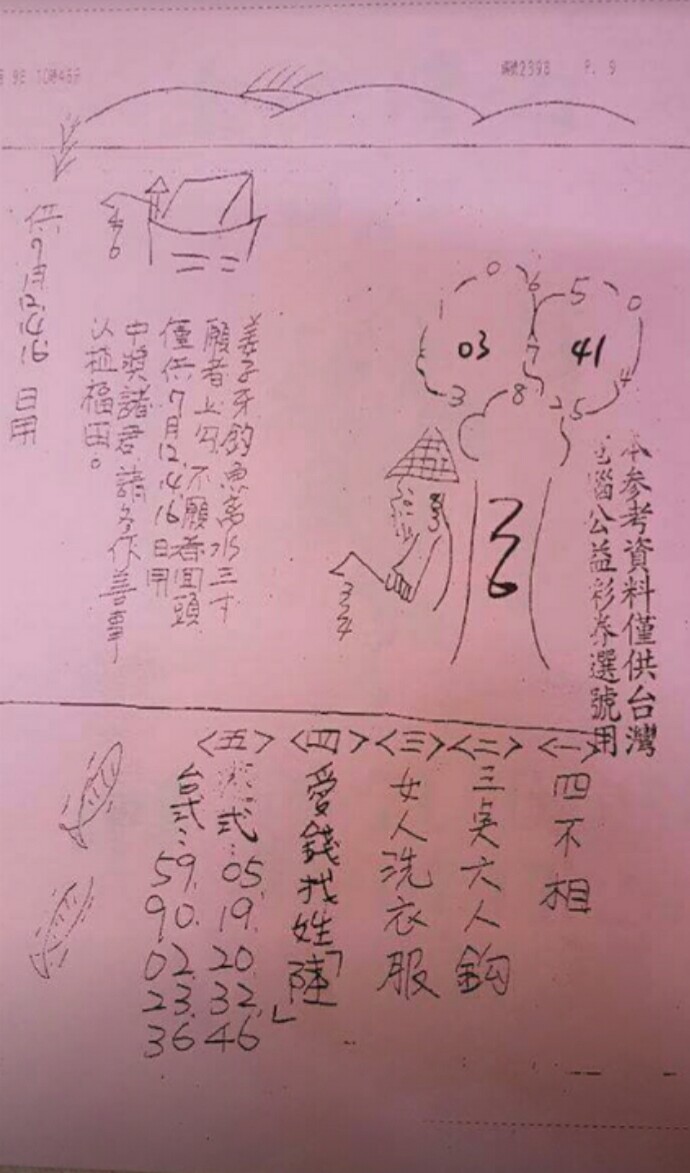 編號2398 P. 9
本參考資料僅供台灣
電腦公益彩券選號用
03
41
0 6 7 8 3 1
5 0 4 5 2
36
334
46
姜子牙釣魚离水三寸
願者上勾、不願者回頭
僅供7月12.14.16日用
中獎諸君請多作善事
以植福田。
供7月12.14.16日用
<一>四不相
<二>三吳六人鈎
<三>女人洗衣服
<四>愛錢找姓「陳」
<五>
式:05. 19. 20. 32. 46
台式:59. 90. 02. 23. 36